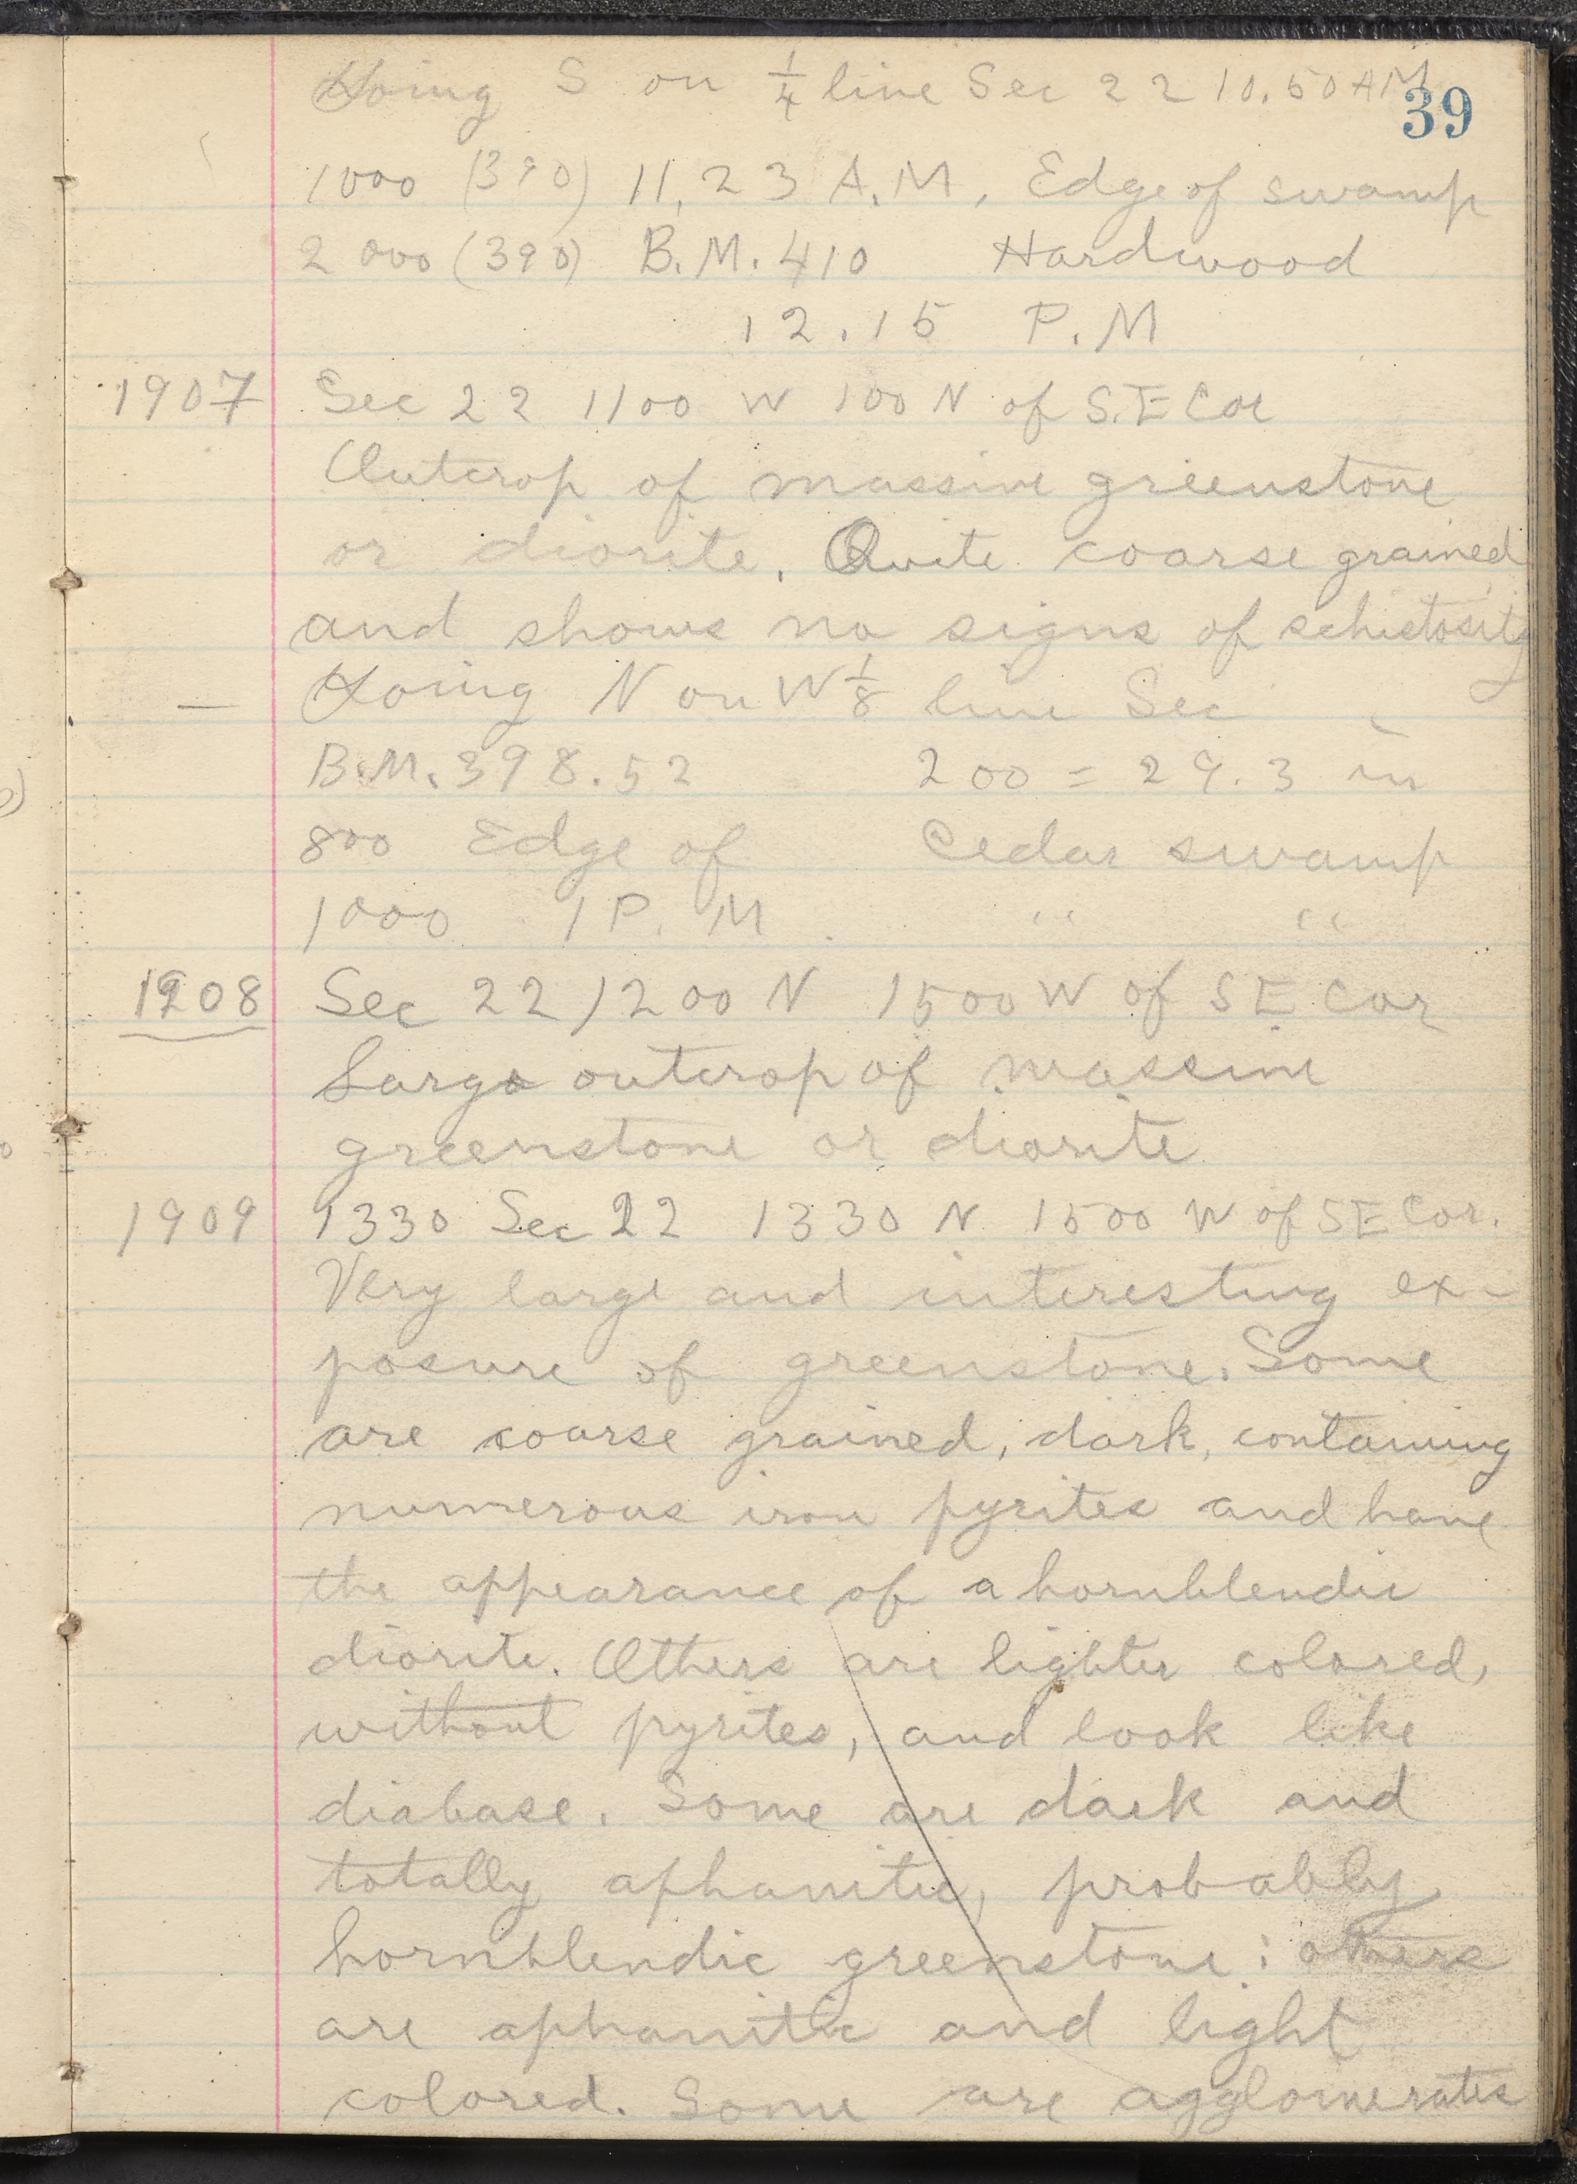 Going S on 1/4 line Sec 22 10.50 AM
39
1000 (390) 11.23 A.M, Edge of swamp
2000 (390) B.M. 410 Hardwood
12.15 P.M
1907 Sec 22 1100 W 100 N of S.E Cor
Outcrop of massive greenstone
or diorite. Quite coarse grained
and shows no signs of schistosity
— Going N on W 1/8 line Sec
B.M. 398.52 200 = 29.3 in
800 Edge of Cedar swamp
1000 1 P. M. " "
1908 Sec 22 1200 N 1500 W of SE Cor
Large outcrop of massive
greenstone or diorite
1909 1330 Sec 22 1330 N 1500 W of SE Cor.
Very large and interesting ex-
posure of greenstone. Some
are coarse grained, dark, containing
numerous iron pyrites and have
the appearance of a hornblendic
diorite. Others are lighter colored,
without pyrites, and look like
diabase. Some are dark and
totally aphanitic, probably
hornblendic greenstone; others
are aphanitic and light
colored. Some are agglomerates